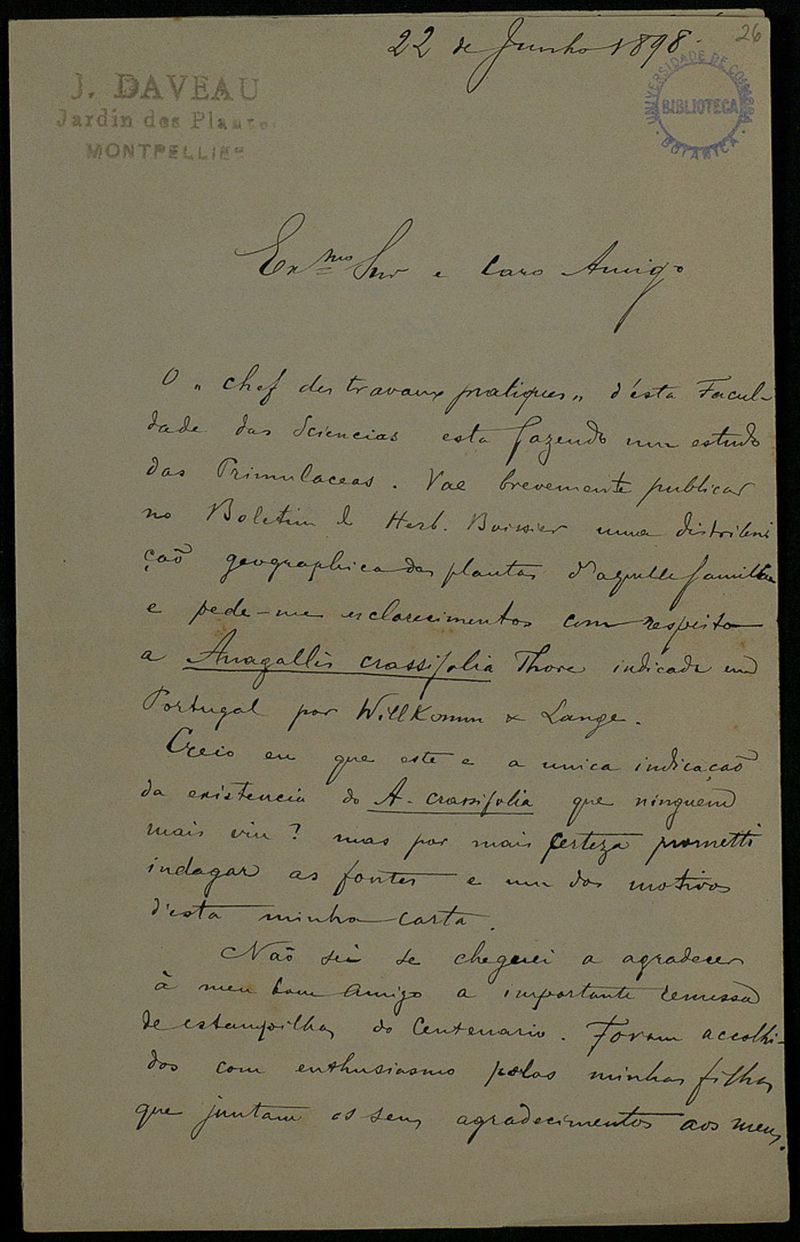 26
22 de Junho 1898.
J. DAVEAU
Jardin des Plantes
MONTPELLIER
UNIVERSIDADE DE COIMBRA
BIBLIOTECA
BOTANICA
Exmo Snr e caro Amigo
O "chef des travaux pratiques" d'esta Facul-
dade das Sciencias esta fazendo um estudo
das Primulaceas. Vae brevemente publicar
no Boletim d Herb. Boissier uma distribui
ção geographica das plantas d'aquella familia
e pede-me esclarecimentos com respeito
a Anagallis crassifolia Thore indicada em
Portugal por Willkomm & Lange.
Creio eu que este e a unica indicação
da existencia do A. crassifolia que ninguem
mais viu? mas por mais certeza prometti
indagar as fontes e um dos motivos
d'esta minha carta.
Não sei se cheguei a agradecer
à meu bom amigo a importante remessa
de estampilhas do Centenario. Foram acolhi-
dos com enthusiasmo pelas minhas filhas
que juntam os seus agradecimentos aos meus.